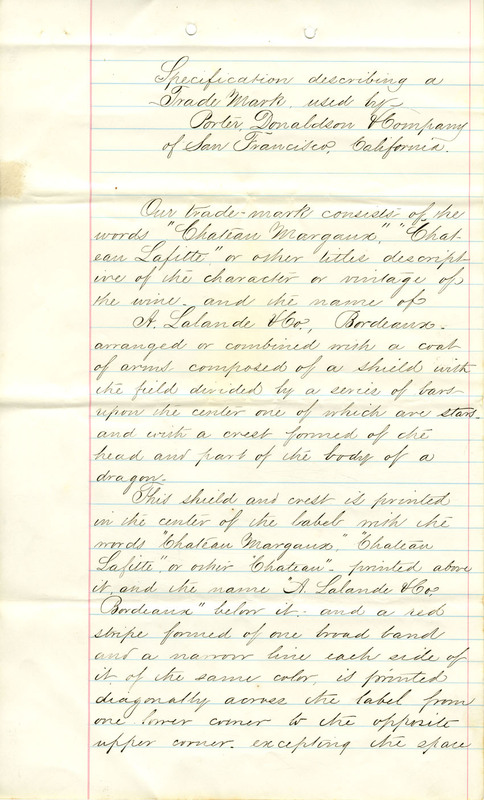 Specification describing a
Trade Mark, used by
Porter, Donaldson & Company
of San Francisco, California.
Our trade-mark consists of the
words "Chateau Margaux," "Chat-
eau Lafitte," or other titles descript-
ive of the character or vintage of
the wine and the name of
A. Lalande & Co., Bordeaux.
arranged or combined with a coat
of arms composed of a shield with
the field divided by a series of bars
upon the center one of which are stars
and with a crest formed of the
head and part of the body of a
dragon.
This shield and crest is printed
in the center of the label with the
words "Chateau Margaux," "Chateau
Lafitte," or other "Chateau" printed above
it, and the name "A. Lalande & Co.
Bordeaux" below it. and a red
stripe formed of one broad band
and a narrow line each side of
it of the same color, is printed
diagonally across the label from
one lower corner to the opposite
upper corner. excepting the space